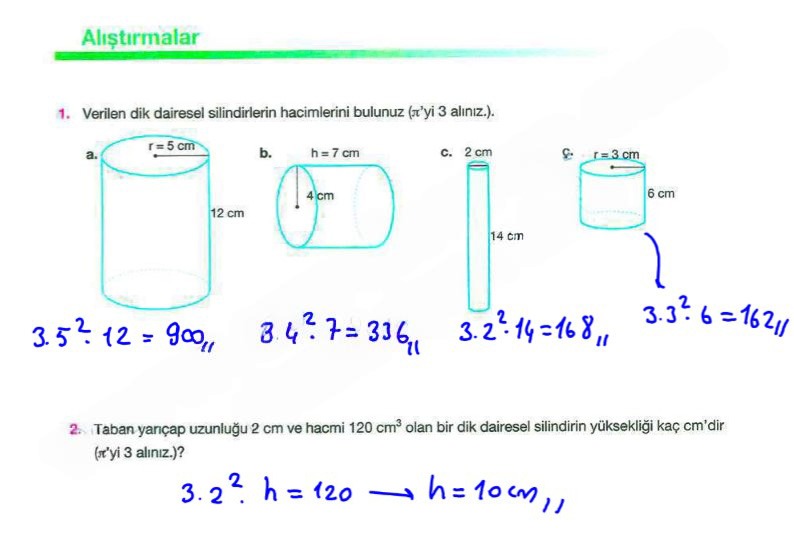 Alıştırmalar
1. Verilen dik dairesel silindirlerin hacimlerini bulunuz (π'yi 3 alınız.).
a. r = 5 cm
12 cm
b. h = 7 cm
4 cm
c. 2 cm
14 cm
ç. r = 3 cm
6 cm
3.5². 12 = 900,,
3.4². 7 = 336,,
3.2². 14 = 168,,
3.3². 6 = 162,,
2. Taban yarıçap uzunluğu 2 cm ve hacmi 120 cm³ olan bir dik dairesel silindirin yüksekliği kaç cm'dir
(π'yi 3 alınız.)?
3.2². h = 120 → h = 10 cm,,